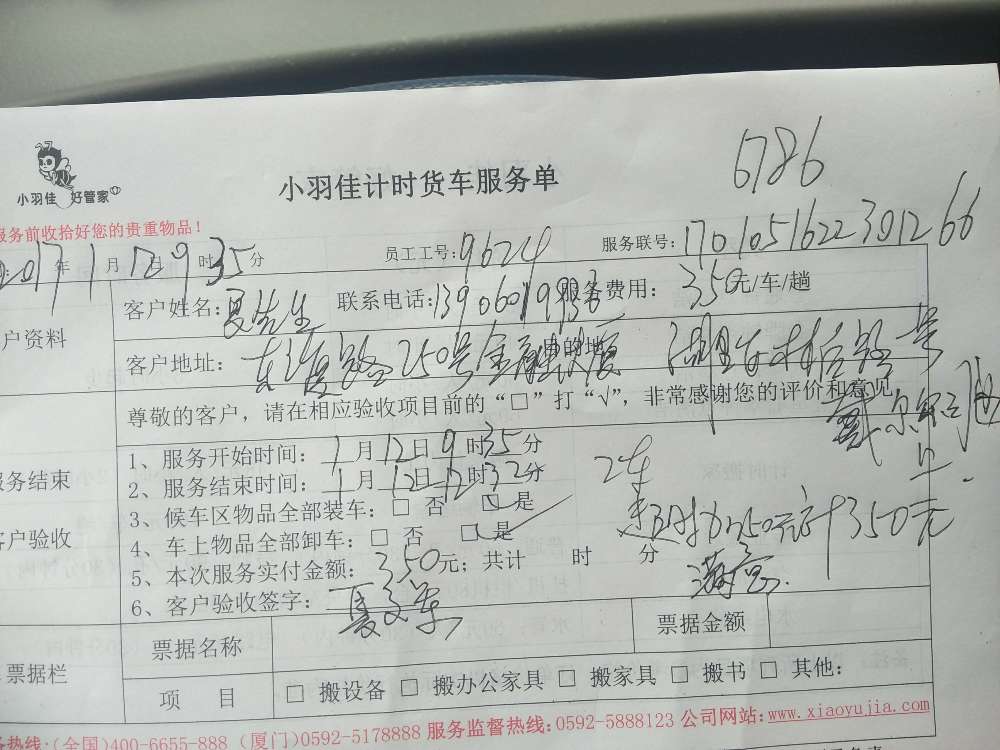 6786
小羽佳 好管家
小羽佳计时货车服务单
服务前收拾好您的贵重物品！
2017年1月12日9时35分 员工工号：9624 服务联号：17010516223012 66
户资料 客户姓名：夏先生 联系电话：服务费用：350元/车/趟
客户地址：250号金融大厦 目的地 湖里
尊敬的客户，请在相应验收项目前的“□”打“√”，非常感谢您的评价和意见
服务结束
客户验收
1、服务开始时间：1月12日9时35分
2、服务结束时间：1月12日12时32分
3、候车区物品全部装车：□ 否 □ 是
4、车上物品全部卸车：□ 否 □ 是
5、本次服务实付金额：350元；共计 时 分
6、客户验收签字：
2车
超时加50元计350元
满意.
票据栏 票据名称 票据金额
项 目 □ 搬设备 □ 搬办公家具 □ 搬家具 □ 搬书 □ 其他：
务热线：(全国)400-6655-888 (厦门)0592-5178888 服务监督热线：0592-5888123 公司网站：www.xiaoyujia.com